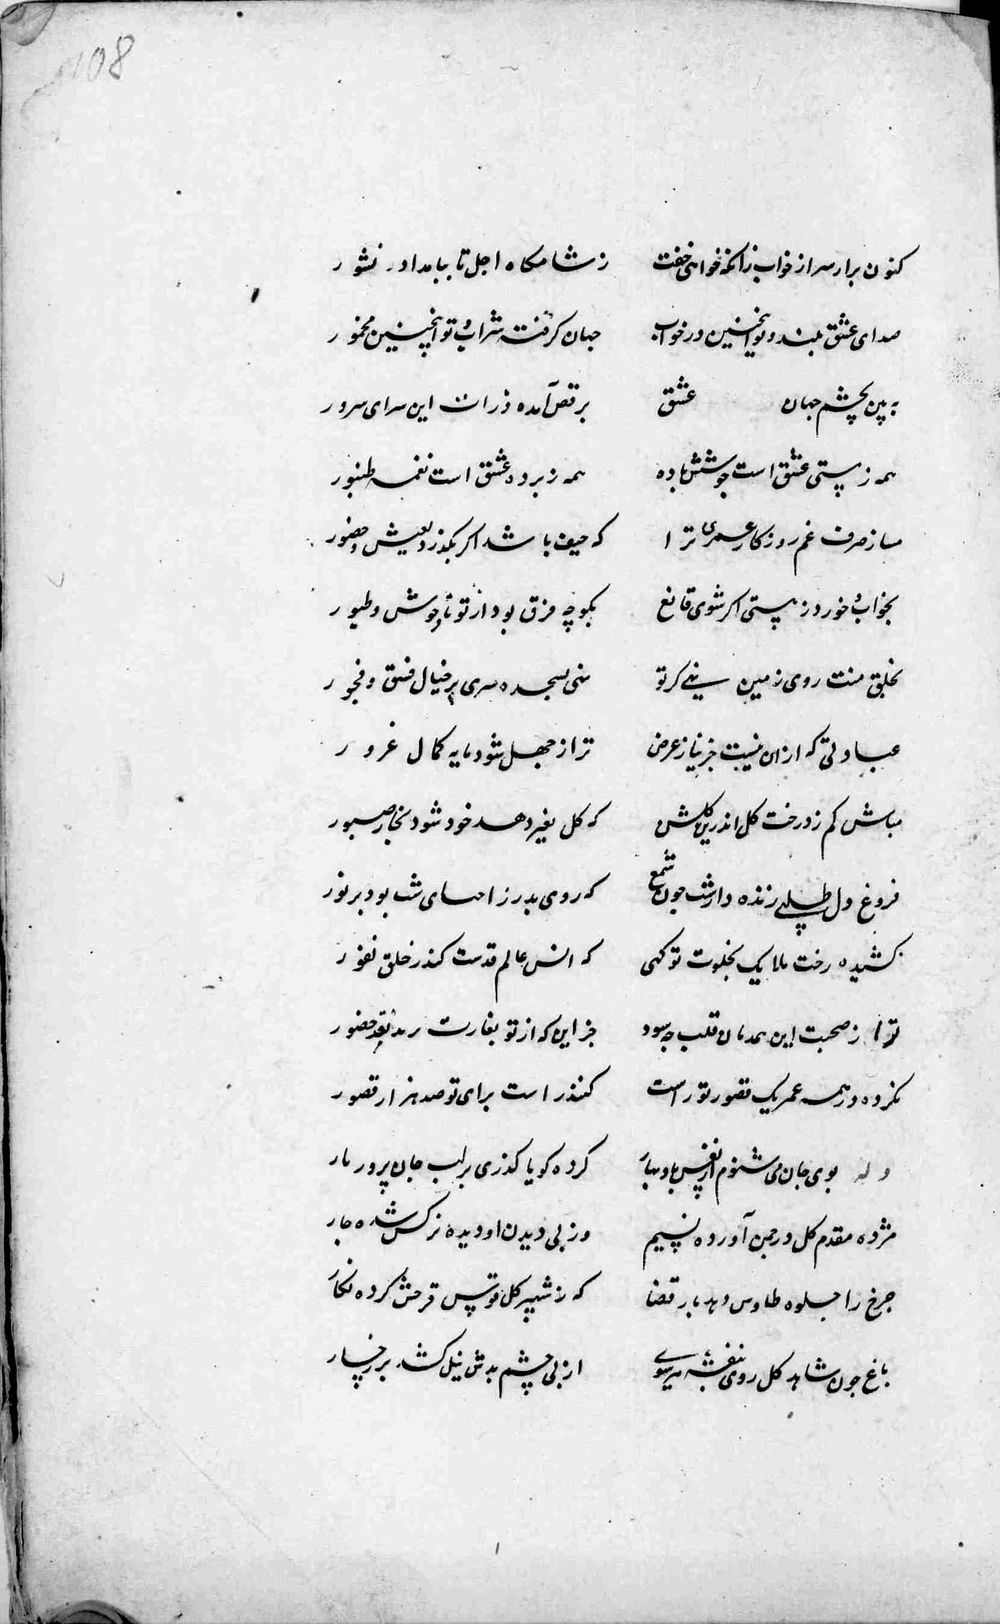 108
کنون برار سر از خواب زانکه خواهی خفت    ز شامکاه اجل تا ببامداد نشور
صدای عشق بلند و تو اینچنین در خواب    جهان کرفت شراب و تو اینچنین مخمور
به بین بچشم جهان عشق    برقص آمده ذرات این سرای سرور
همه ز پستی عشق است جوشش باده    همه ز پرده عشق است نغمه طنبور
مساز صرف غم روزکار عمری ترا    که حیف باشد اکر بکذرد بعیش و حضور
بخواب و خورد ز پستی اکر شوی قانع    بکو چه فرق بود از تو تا وحوش و طیور
بخلق منت روی زمین نهی کر تو    نهی بسجده سری پر خیال فسق و فجور
عبادتی که از ان نیست جز نیاز عرض    ترا ز جهل شود مایه کمال غرور
مباش کم ز درخت کل اندرین کلشن    که کل بغیر دهد خود شود بخار صبور
فروغ دل طلبی زنده دار شب چون شمع    که روی بدر ز احیای شب بود پر نور
کشیده رخت ملایک بخلوت تو کهی    که انس عالم قدست کند ز خلق نفور
ترا ز صحبت این همدمان قلب چه سود    جز این که از تو بغارت برند نقد حضور
نکرده در همه عمر یک قصور تو راست    کنند راست برای تو صد هزار قصور
وله بوی جان می شنوم از نفس باد بهار    کرده کویا کذری بر لب جان پرور یار
مژده مقدم کل در چمن آورده نسیم    وز پی دیدن او دیده نرکس شده چار
چرخ را جلوه طاوس دهد بار قضا    که ز شهپر کل قوس قزحش کرده نکار
باغ چون شاهد کل روی بنفشه موی    از پی چشم بدش نیل کشد بر رخسار